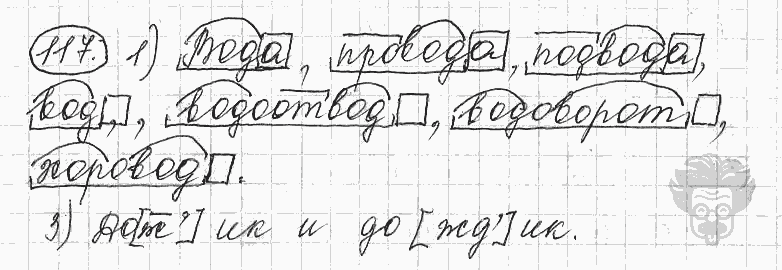 117. 1) Вода, провода, подвода,
вод, водоотвод, водоворот,
хоровод.
3) до[ж̄']ик и до[жд']ик.